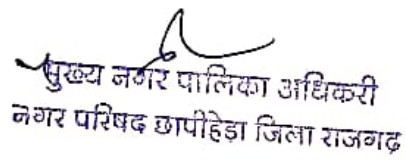 मुख्य नगर पालिका अधिकरी
नगर परिषद छापीहेड़ा जिला राजगढ़